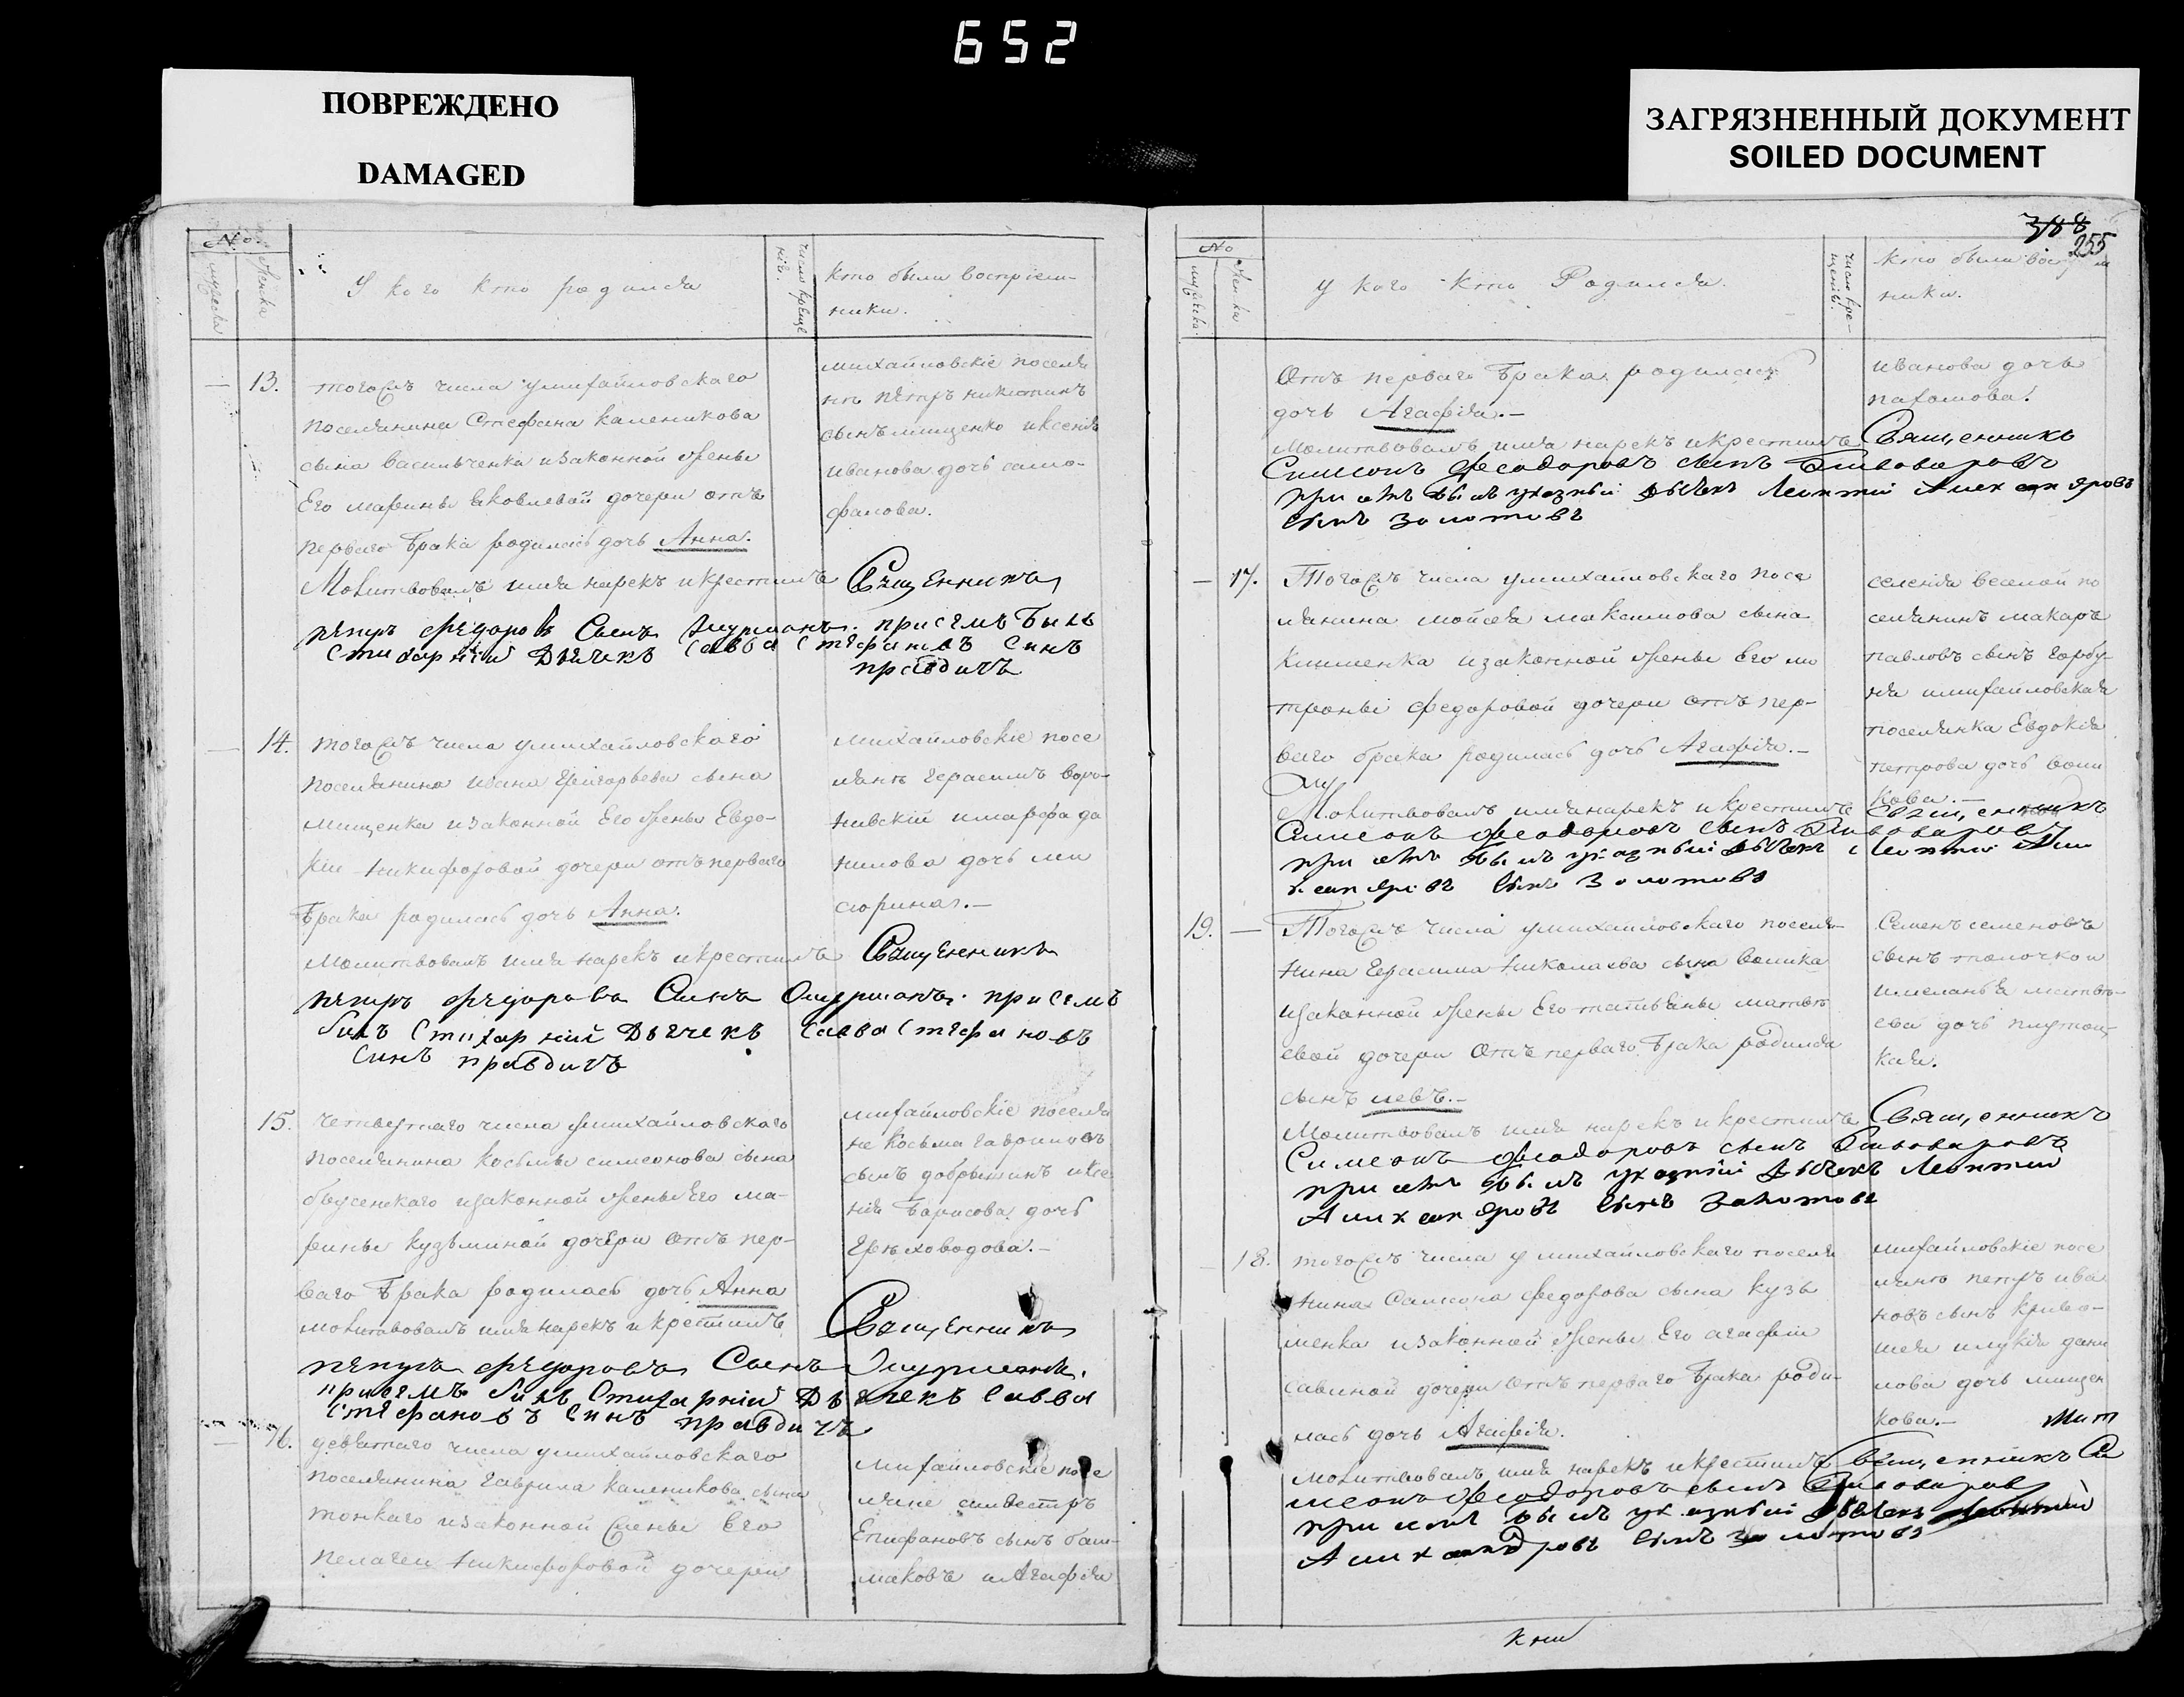 652
ПОВРЕЖДЕНО
DAMAGED
ЗАГРЯЗНЕННЫЙ ДОКУМЕНТ
SOILED DOCUMENT
No.
мужеска
женска
У кого кто родился
число креще
нія.
кто были воспріем-
ники.
13.
тогожъ числа умихайловскаго
поселянина Стефана каленикова
сына васильченка изаконной жены
Его марины яковлевой дочери отъ
перваго брака родилась дочь Анна.
Молитвовалъ имя нарекъ икрестилъ Священникъ
петръ федоровъ Сынъ присемъ былъ
Стихарний Дьячекъ Савва Стефановъ Синъ
правдичъ
михайловскіе поселя
нъ петръ никитинъ
сынъ мищенко иксенія
иванова дочь само-
фалова.
14.
тогожъ числа умихайловскаго
поселянина ивана григорьева сына
мищенка изаконной Его жены Евдо-
кіи никифоровой дочери отъ перваго
брака родилась дочь Анна.
молитвовалъ имя нарекъ икрестилъ Священникъ
петръ федоровъ Синъ присемъ
билъ Стихарний Дьячекъ Савва Стефановъ
Синъ правдичъ
михайловскіе посе
лянъ герасимъ воро-
нивскій имарфа да
нилова дочь
15.
четвертаго числа умихайловскаго
поселянина козьмы симеонова сына
изаконной жены Его ма-
рины кузьминой дочери отъ пер-
ваго брака родилась дочь Анна
молитвовалъ имя нарекъ икрестилъ Священникъ
петръ федоровъ Сынъ
присемъ билъ Стихарний Дьячекъ Савва
Стефановъ Синъ правдичъ
михайловскіе поселя
не козьма гавриловъ
сынъ добрынинъ иксе
нія борисова дочь
грѣховодова.-
16.
девятаго числа умихайловскаго
поселянина гаврила каленикова сына
тонкаго изаконной жены Его
пелагеи никифоровой дочери
михайловскіе посе
ляне силвестръ
Епифановъ сынъ баш-
маковъ иАгафія
388
255
No
мужеска.
женска
у кого кто Родился.
число кре-
щенія.
кто были
ники.
Отъ перваго брака родилась
дочь Агафія.-
молитвовалъ имя нарекъ икрестилъ Священникъ
Симеонъ феодоровъ сынъ Пивоваровъ
при семъ былъ указный дьячекъ Леонтій
сынъ Золотовъ
иванова дочь
пахомова.
17.
Тогожъ числа умихайловскаго посе
лянина мойсея максимова сына
клименка изаконной жены Его ма
троны федоровой дочери отъ пер-
ваго брака родилась дочь Агафія.-
Молитвовалъ имянарекъ икрестилъ Священникъ
Симеонъ феодоровъ сынъ Пивоваровъ
при семъ былъ указный дьячекъ Леонтій
сынъ Золотовъ
селенія веселой по
селянинъ макаръ
павловъ сынъ горбу-
ня имихайловская
поселянка Евдокія
петрова дочь воли
кова.-
19.
Тогожъ числа умихайловскаго поселя-
нина Герасима николаева сына волика
изаконной жены Его татьяны матвѣ
евой дочери Отъ перваго брака родился
сынъ левъ.-
Молитвовалъ имя нарекъ икрестилъ Священникъ
Симеонъ феодоровъ сынъ Пивоваровъ
при семъ былъ указный дьячекъ Леонтій
сынъ Золотовъ
Семенъ семеновъ
сынъ толочко и
имеланья матвѣ-
ева дочь
кая.
18.
тогожъ числа умихайловскаго поселя
нина Самсона федорова сына кузь
менка изаконной жены Его агафіи
савиной дочери отъ перваго брака роди-
лась дочь Агафія.
молитвовалъ имя нарекъ икрестилъ Священникъ Си
меонъ феодоровъ сынъ Пивоваровъ
при семъ былъ указный дьячекъ Леонтій
сынъ Золотовъ
михайловскіе посе
лянъ петръ ива
новъ сынъ криво-
шея илукія дани
лова дочь мищен
кова.-